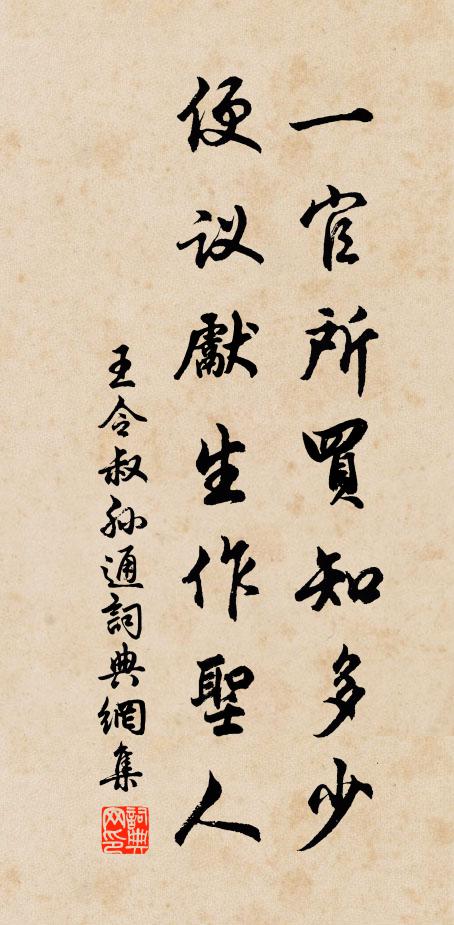 一官所買知多少
便议獻生作聖人
王令叔孫通詞典網集
詞典网印